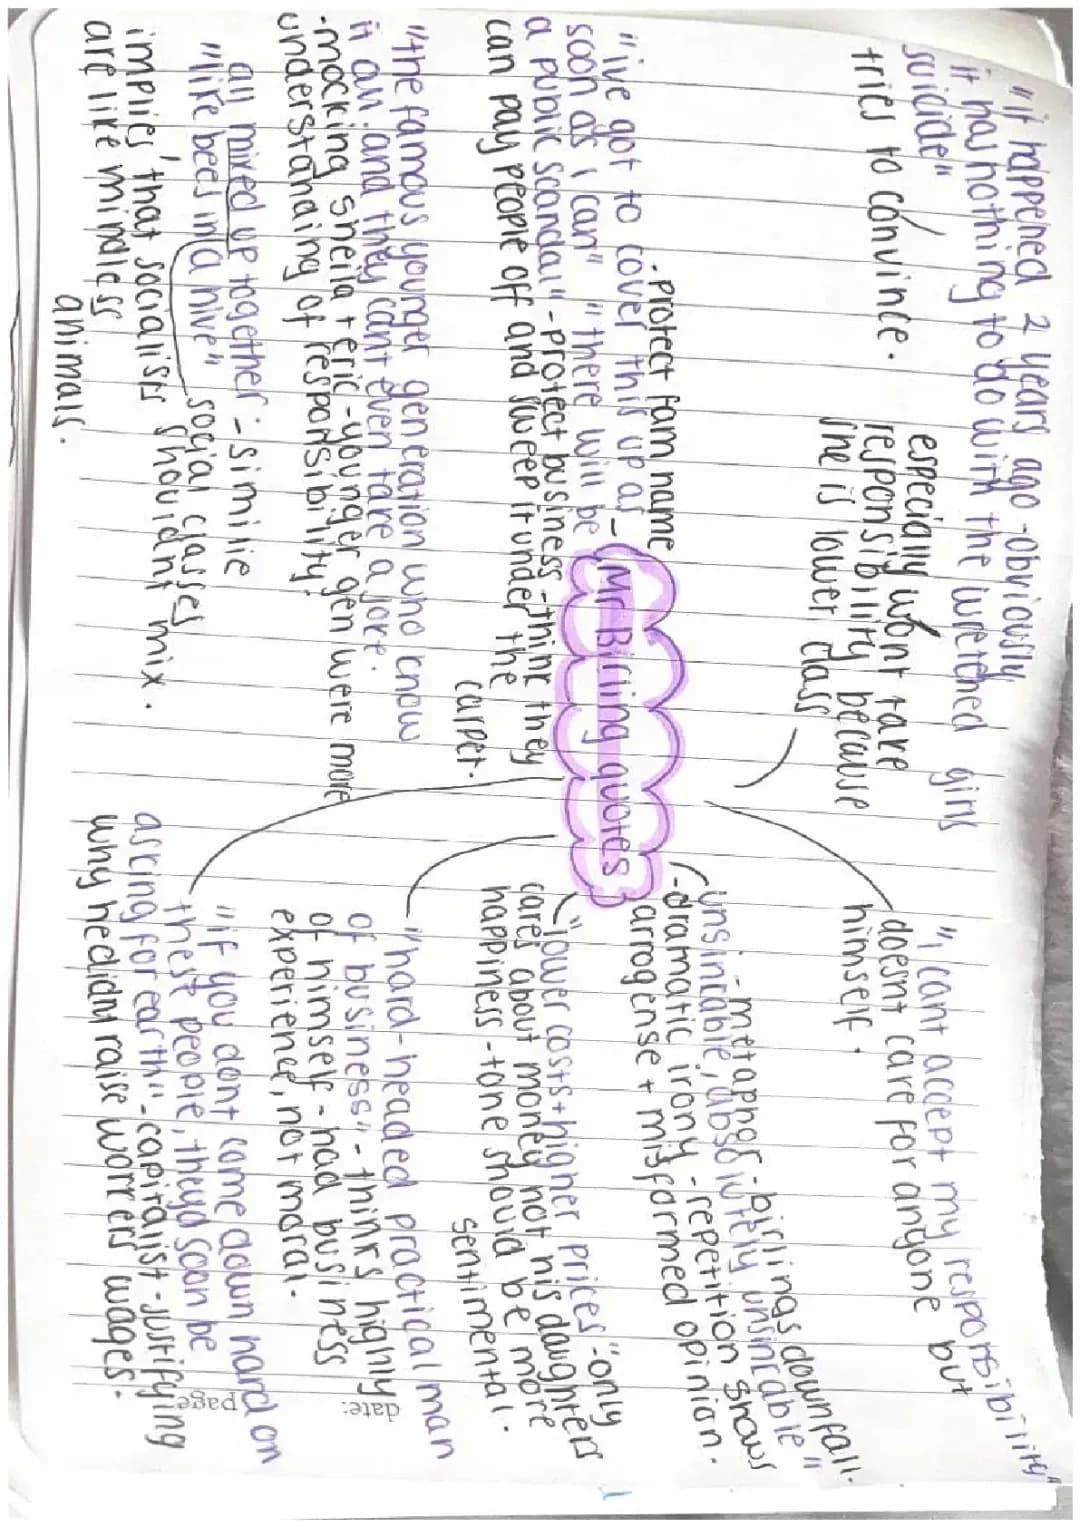 "it happened 2 years ago -obviously
it has nothing to do with the wretched girls
suicide"
tries to convince.
especially won't take
responsibility because
she is lower class
"i cant accept my responsibility"
doesnt care for anyone but
himself.
-protect fam name
"ive got to cover this up as-
soon as i can" "there will be
a public scandal" -protect business -think they
can pay people off and sweep it under the
carpet.
Mr Birling quotes
-metaphor -birlings downfall.
"unsincable, absolutely unsincable"
-dramatic irony -repetition shows
arrogense + misformed opinion.
"lower costs+higher prices" -only
cares about money not his daughters
happiness -tone should be more
sentimental.
"the famous younger generation who know
it all and they cant even take a joke.
-mocking sheila + eric -younger gen were more
understanding of responsibility.
"hard-headed practical man
of business" -thinks highly
of himself -had business
experience, not moral.
all mixed up together -similie
"like bees in a hive"
social classes
implies that socialists shouldnt mix.
are like mindless
animals.
"if you dont come down hard on
these people, theyd soon be
asking for earth" -capitalist -justifying
why he didnt raise workers wages.
date:
page: